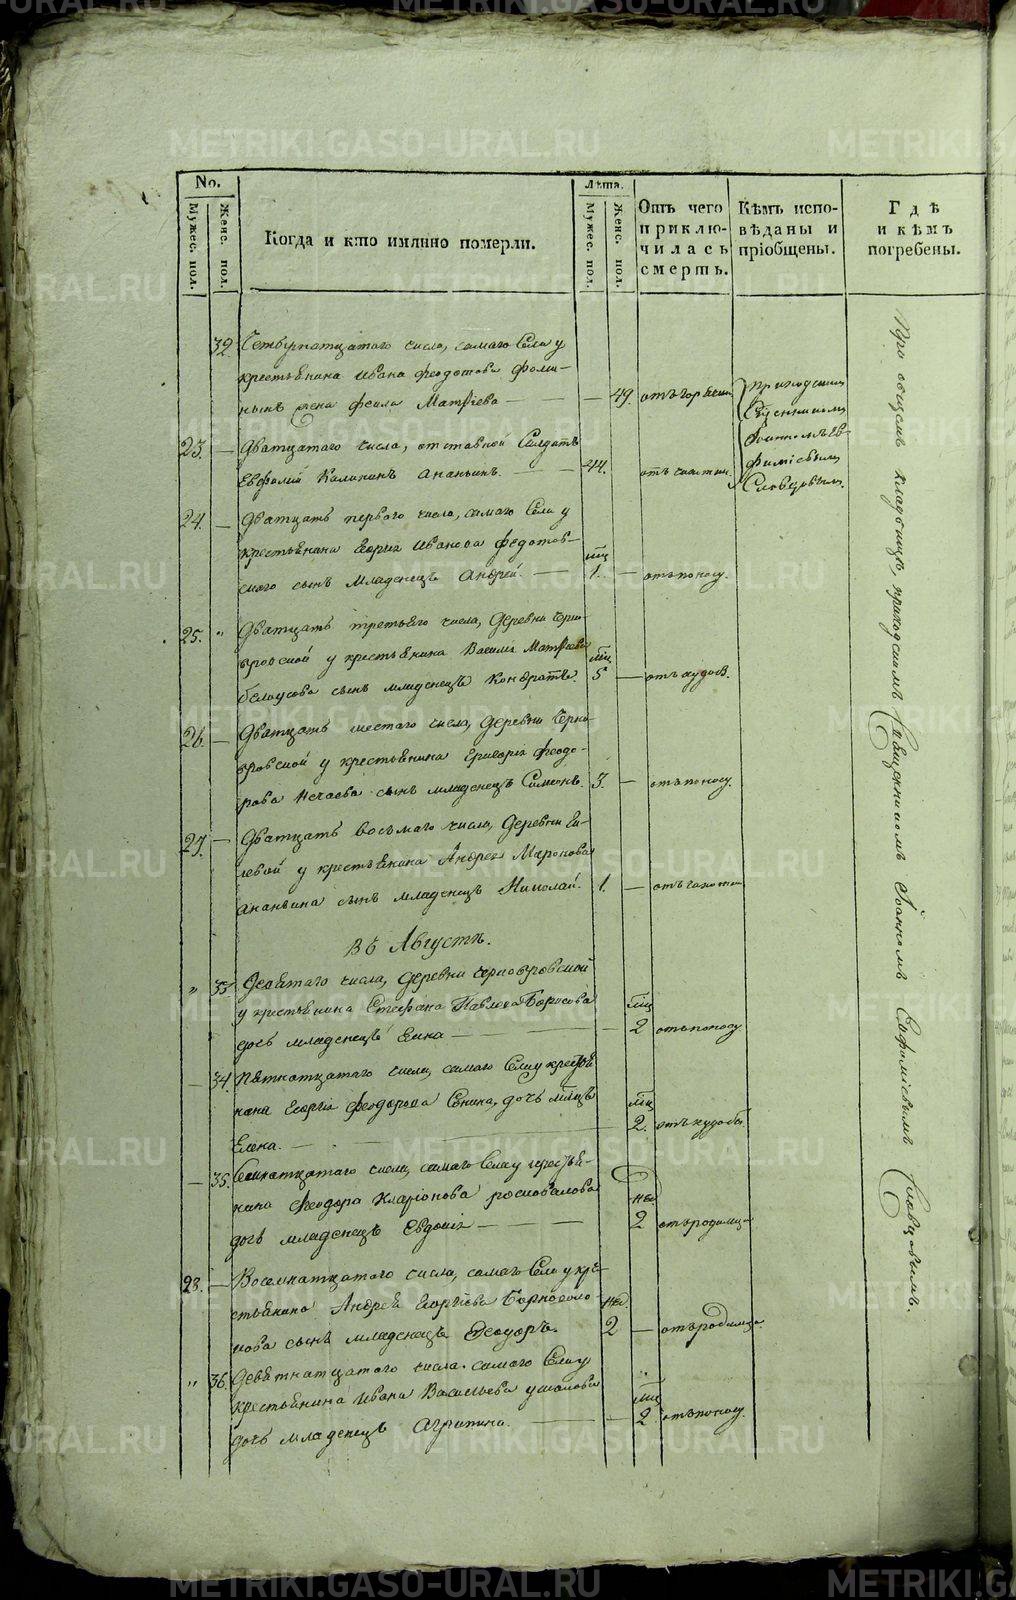 METRIKI.GASO-URAL.RU
No.
Мужес. пол.
Женс. пол.
Когда и кто имянно померли.
Лѣта.
Мужес. пол.
Женс. пол.
Отъ чего приклю-
чилась смерть.
Кѣмъ испо-
вѣданы и
пріобщены.
Гдѣ
и кѣмъ
погребены.
32. Четвернатцатаго числа, самаго Села у
крестьянина Ивана Феодотова
жена Матѳіева — 49. отъ горячки
Приходскимъ
Священникомъ
Іоанномъ Ев-
фиміевымъ
Словцовымъ.
23. — Дватцатаго числа, отставной Солдатъ
Ананьинъ. — 44.
24. — Дватцать перваго числа, самаго Села у
крестьянина Георгія Иванова Федотов-
скаго сынъ младенецъ Андрей. — мц 1. — отъ поносу.
25. " Дватцать третьяго числа, Деревни Черно-
бровской у крестьянина Василья Матѳіева
Белоусова сынъ младенецъ Кондратъ. мц 5 —
26. — Дватцать шестаго числа, Деревни Черно-
бровской у крестьянина Григорія Феодо-
рова Нечаева сынъ младенецъ Симеонъ. 3. — отъ поносу.
27. — Дватцать восьмаго числа, Деревни
у крестьянина Андрея Миронова
Ананьина сынъ младенецъ Николай. 1. —
Въ Августѣ.
" 33. Десятаго числа, Деревни Чернобровской
у крестьянина Стефана Павлова Борисова
дочь младенецъ — мц 2 отъ поносу
— 34. Пятнатцатаго числа, самаго Села у крестья-
нина Георгія Феодорова дочь млнцъ
Елена. — мц 2. отъ худобы.
— 35. Семнатцатаго числа, самаго Села у крестья-
нина Феодора Иларіонова
дочь младенецъ Евдокія — нед 2 отъ родимца
28. — Восемнатцатаго числа, самаго Села у кре-
стьянина Андрея Георгіева Черноголо-
вова сынъ младенецъ Феодоръ. нед. 2 — отъ родимца.
" 36. Девятнатцатаго числа. самаго Села у
крестьянина Ивана Васильева Ушакова
дочь младенецъ Агрипина. — мц 2 отъ поносу.
При общемъ кладбищѣ, приходскимъ Священникомъ Іоанномъ Евфиміевымъ Словцовымъ.